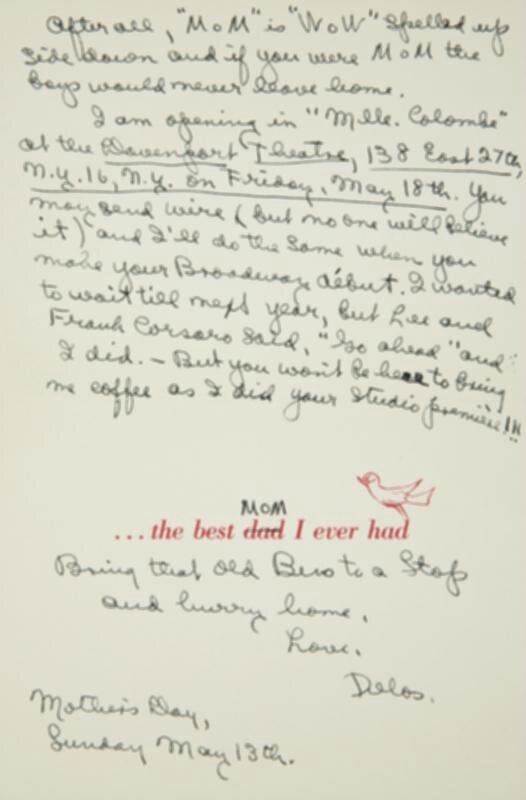 After all, "MoM" is "WoW" spelled up
side down and if you were MoM the
boys would never leave home.
I am opening in "Mlle. Colombe"
at the Davenport Theatre, 138 East 27th,
N.Y. 16, N.Y. on Friday, May 18th. You
may send wire (but no one will believe
it) and I'll do the same when you
make your Broadway début. I wanted
to wait till next year, but Lee and
Frank Corsaro said, "Go ahead" and
I did. – But you won't be here to bring
me coffee as I did your studio première!!!
MOM
... the best dad I ever had
Bring that old Bus to a Stop
and hurry home.
Love.
Delos.
Mother's Day,
Sunday May 13th.